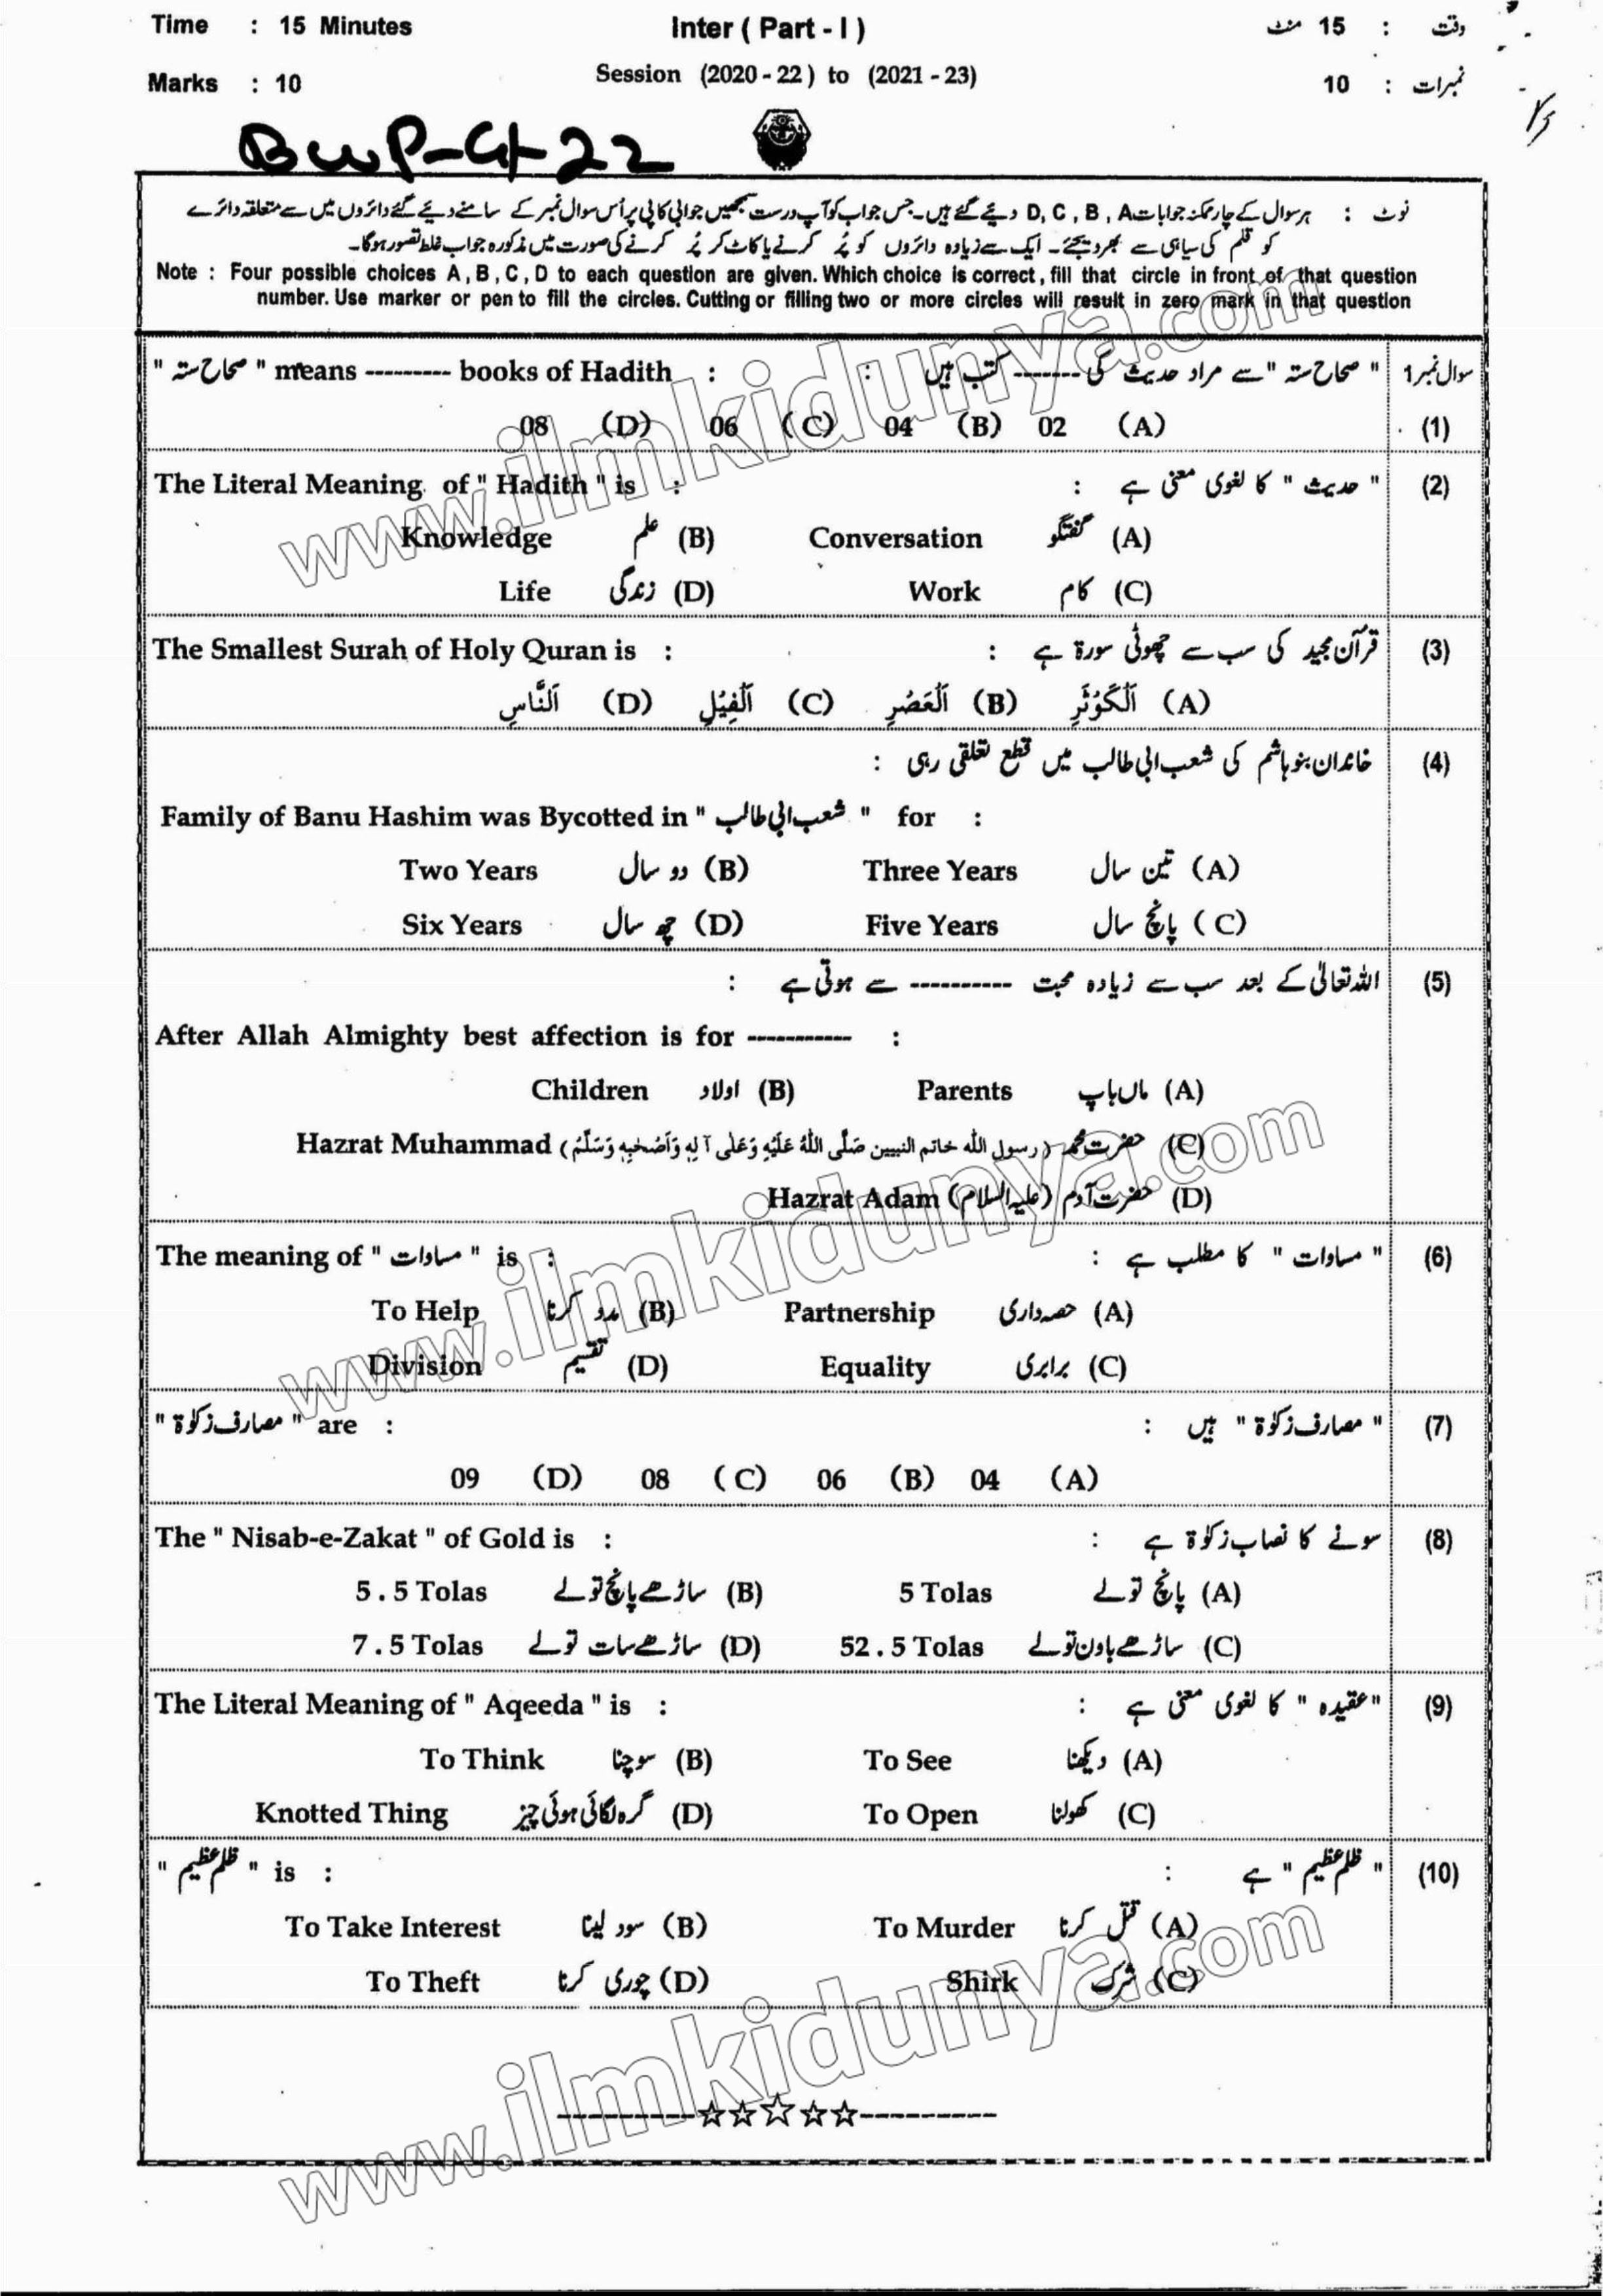 Time : 15 Minutes Inter ( Part - I ) وقت : 15 منٹ
Marks : 10 Session (2020 - 22) to (2021 - 23) نمبرات : 10
BWP-G1-22
نوٹ : ہر سوال کے چار ممکنہ جوابات D, C, B, A دیئے گئے ہیں۔ جس جواب کو آپ درست سمجھیں جوابی کاپی پر اُس سوال نمبر کے سامنے دیئے گئے دائروں میں سے متعلقہ دائرے
کو قلم کی سیاہی سے بھر دیجئے۔ ایک سے زیادہ دائروں کو پُر کرنے یا کاٹ کر پُر کرنے کی صورت میں مذکورہ جواب غلط تصور ہوگا۔
Note : Four possible choices A, B, C, D to each question are given. Which choice is correct, fill that circle in front of that question
number. Use marker or pen to fill the circles. Cutting or filling two or more circles will result in zero mark in that question
سوال نمبر 1 " صحاح ستہ " سے مراد حدیث کی ------- کتب ہیں : " صحاح ستہ " means --------- books of Hadith :
(1) (A) 02 (B) 04 (C) 06 (D) 08
(2) " حدیث " کا لغوی معنی ہے : The Literal Meaning of " Hadith " is :
(A) گفتگو Conversation (B) علم Knowledge
(C) کام Work (D) زندگی Life
(3) قرآن مجید کی سب سے چھوٹی سورۃ ہے : The Smallest Surah of Holy Quran is :
(A) اَلْكَوْثَرِ (B) اَلْعَصْرِ (C) اَلْفِيْلِ (D) اَلنَّاسِ
(4) خاندان بنو ہاشم کی شعب ابی طالب میں قطع تعلقی رہی :
Family of Banu Hashim was Bycotted in " شعب ابی طالب " for :
(A) تین سال Three Years (B) دو سال Two Years
(C) پانچ سال Five Years (D) چھ سال Six Years
(5) اللہ تعالیٰ کے بعد سب سے زیادہ محبت ---------- سے ہوتی ہے :
After Allah Almighty best affection is for ----------- :
(A) ماں باپ Parents (B) اولاد Children
(C) حضرت محمد (رسول الله خاتم النبيين صَلَّى اللهُ عَلَيْهِ وَعَلٰى آلِهٖ وَاَصْحٰبِهٖ وَسَلَّمَ) Hazrat Muhammad
(D) حضرت آدم (علیہ السلام) Hazrat Adam
(6) " مساوات " کا مطلب ہے : The meaning of " مساوات " is :
(A) حصہ داری Partnership (B) مدد کرنا To Help
(C) برابری Equality (D) تقسیم Division
(7) " مصارف زکوٰۃ " ہیں : " مصارف زکوٰۃ " are :
(A) 04 (B) 06 (C) 08 (D) 09
(8) سونے کا نصاب زکوٰۃ ہے : The " Nisab-e-Zakat " of Gold is :
(A) پانچ تولے 5 Tolas (B) ساڑھے پانچ تولے 5 . 5 Tolas
(C) ساڑھے باون تولے 52 . 5 Tolas (D) ساڑھے سات تولے 7 . 5 Tolas
(9) " عقیدہ " کا لغوی معنی ہے : The Literal Meaning of " Aqeeda " is :
(A) دیکھنا To See (B) سوچنا To Think
(C) کھولنا To Open (D) گرہ لگائی ہوئی چیز Knotted Thing
(10) " ظلم عظیم " ہے : " ظلم عظیم " is :
(A) قتل کرنا To Murder (B) سود لینا To Take Interest
(C) شرک Shirk (D) چوری کرنا To Theft
www.ilmkidunya.com
www.ilmkidunya.com
www.ilmkidunya.com